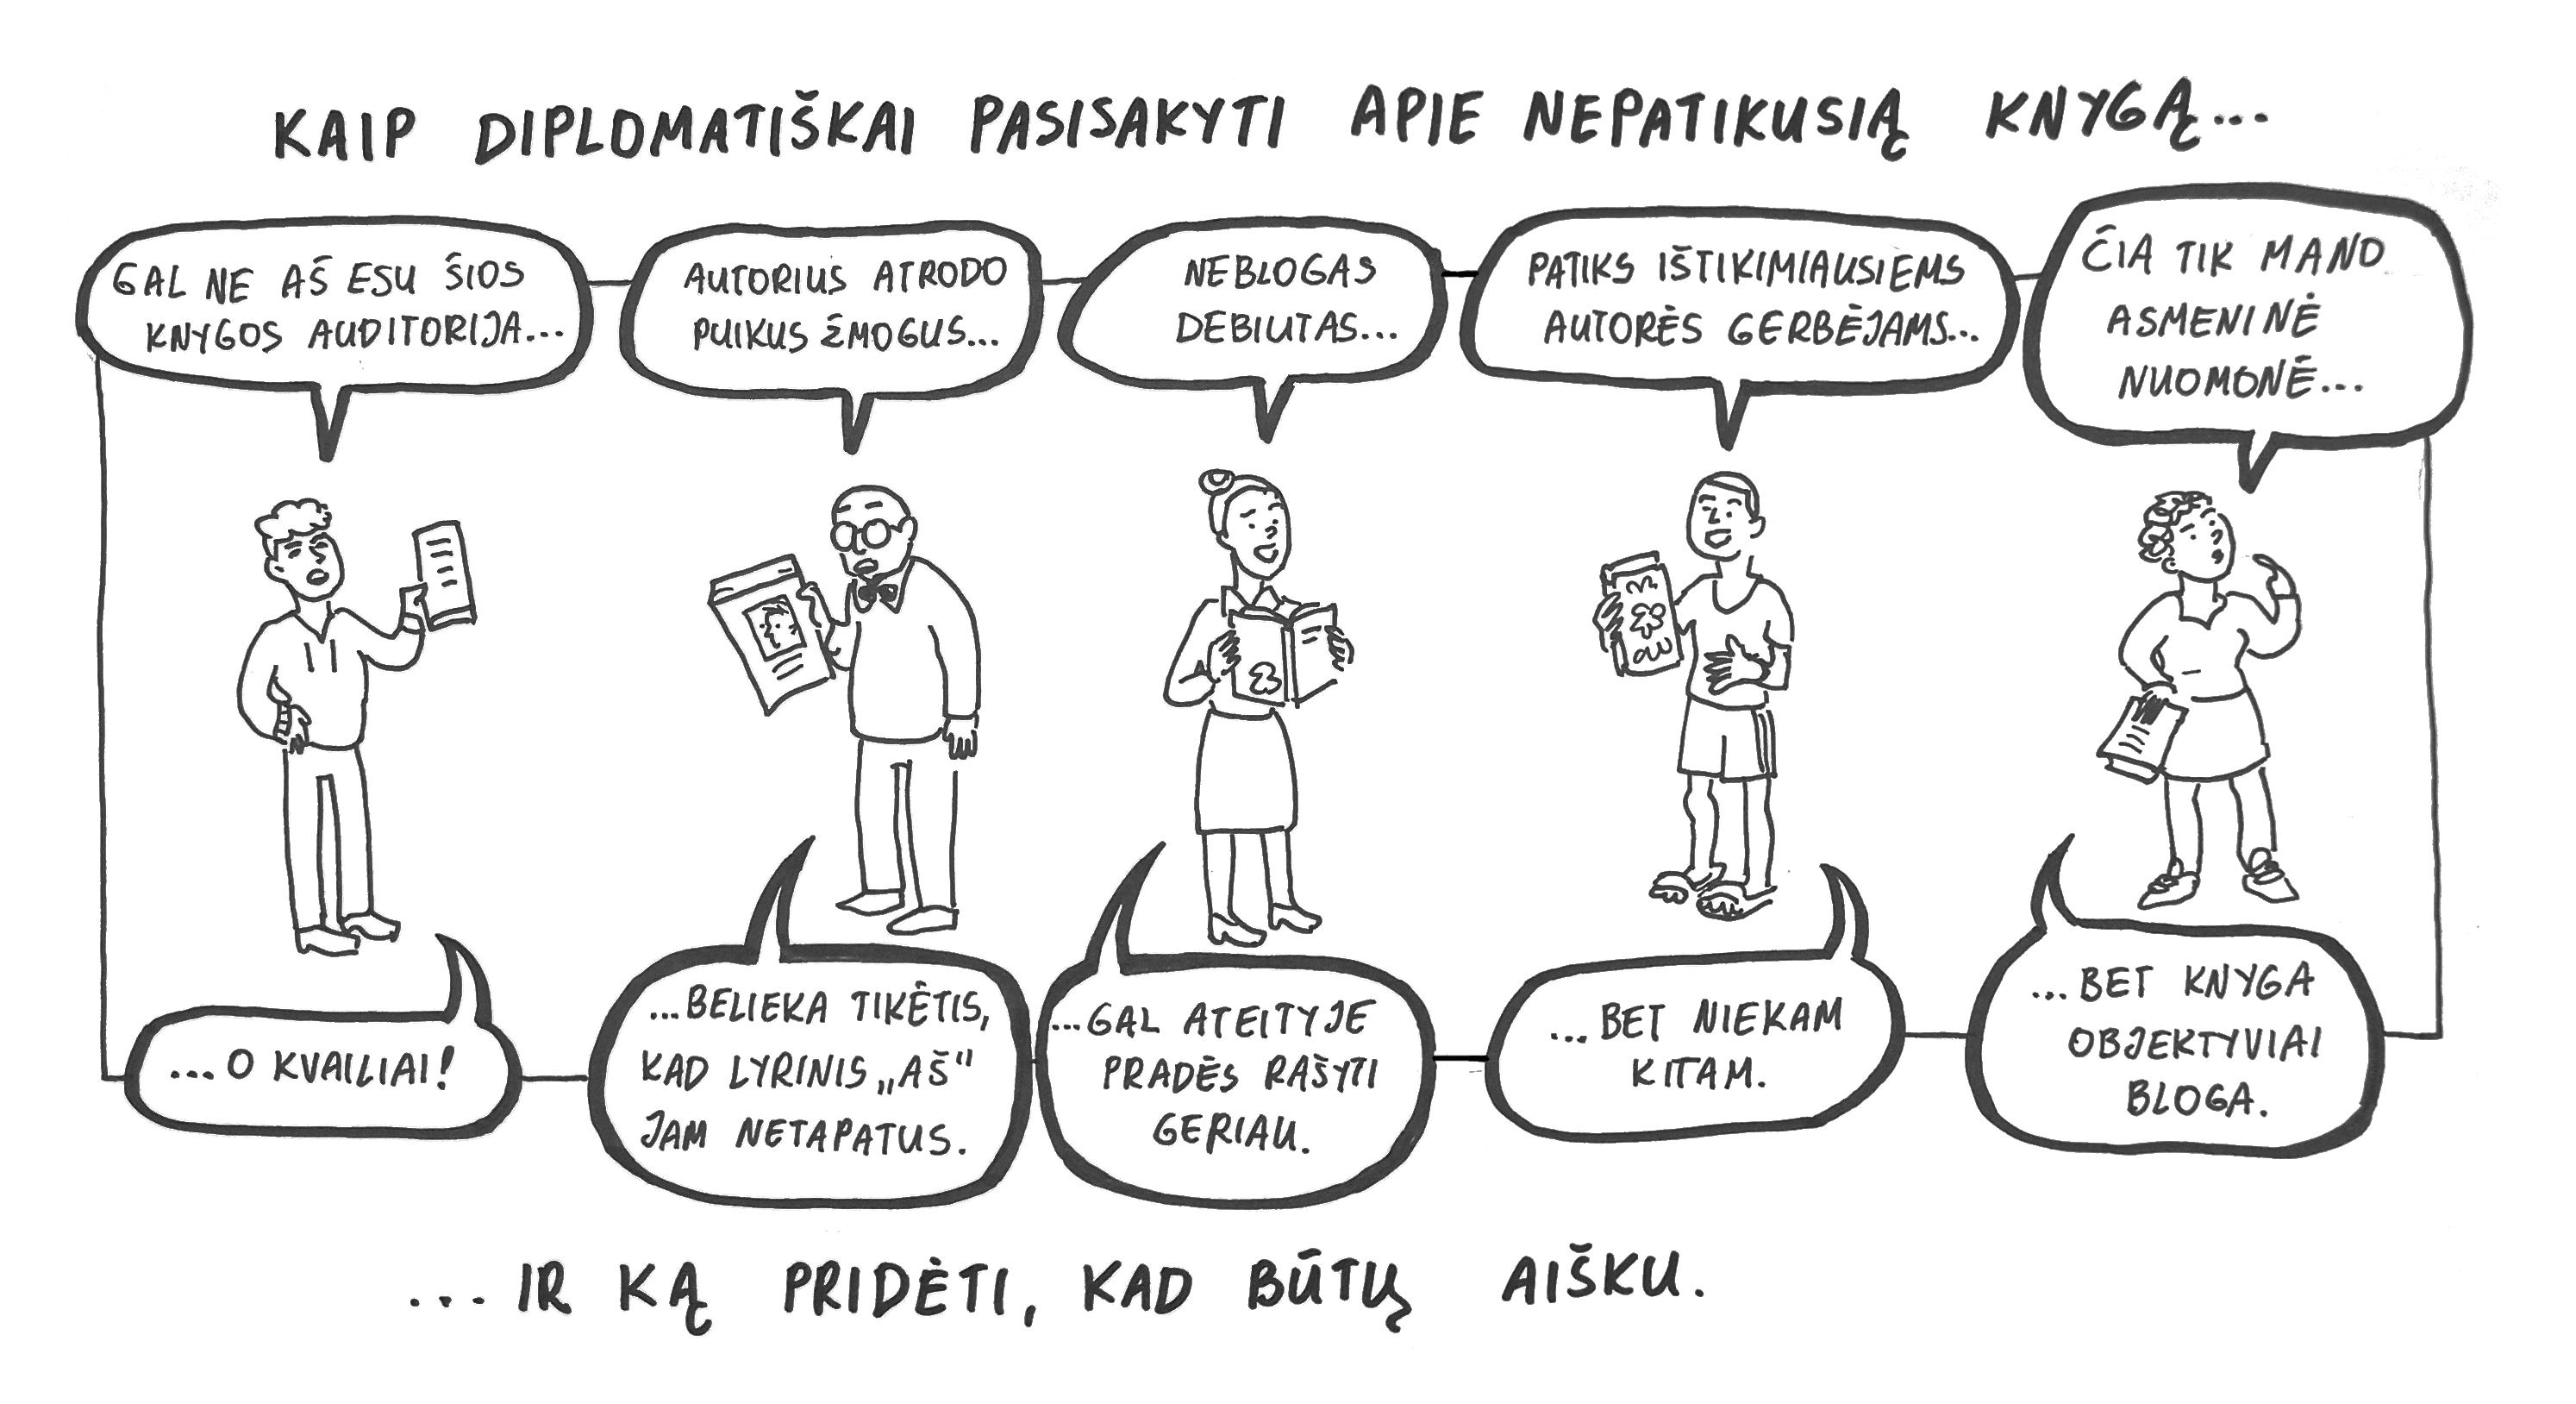 KAIP DIPLOMATIŠKAI PASISAKYTI APIE NEPATIKUSIĄ KNYGĄ...
GAL NE AŠ ESU ŠIOS
KNYGOS AUDITORIJA...
AUTORIUS ATRODO
PUIKUS ŽMOGUS...
NEBLOGAS
DEBIUTAS...
PATIKS IŠTIKIMIAUSIEMS
AUTORĖS GERBĖJAMS...
ČIA TIK MANO
ASMENINĖ
NUOMONĖ...
...O KVAILIAI!
...BELIEKA TIKĖTIS,
KAD LYRINIS „AŠ“
JAM NETAPATUS.
...GAL ATEITYJE
PRADĖS RAŠYTI
GERIAU.
...BET NIEKAM
KITAM.
...BET KNYGA
OBJEKTYVIAI
BLOGA.
...IR KĄ PRIDĖTI, KAD BŪTŲ AIŠKU.